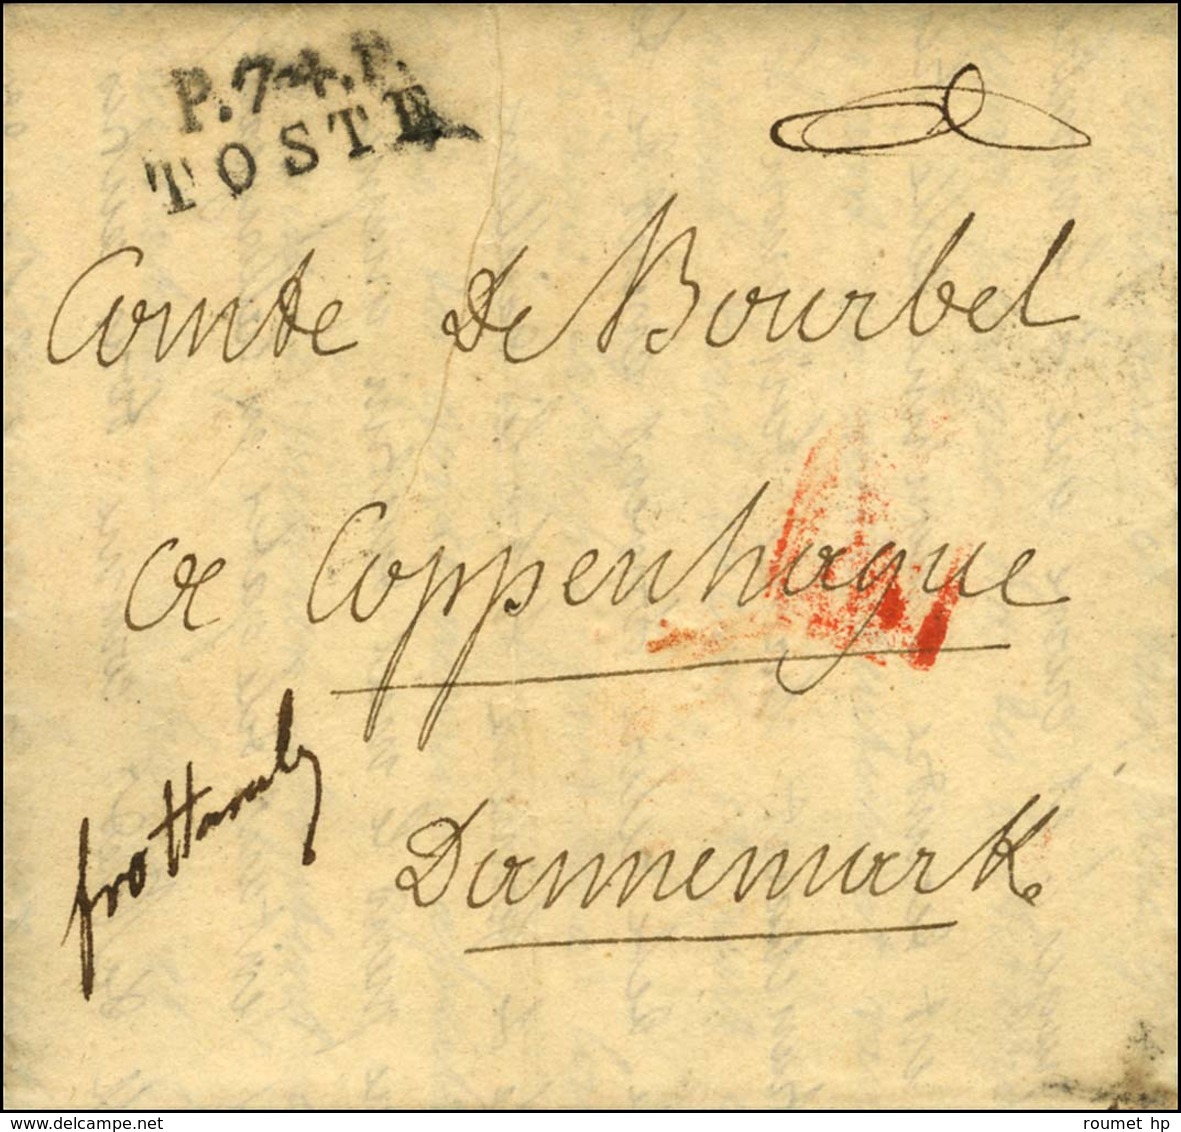 P.74.P.
TOSTE
Comte De Bourbel
a Coppenhague
fro Hamb
Dannemark
www.delcampe.net
roumet hp